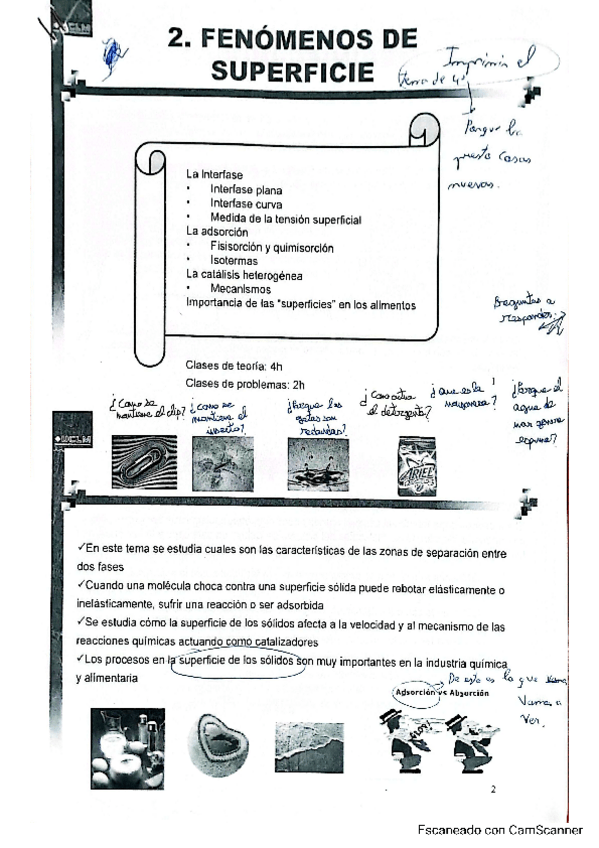 UCLM
2. FENÓMENOS DE
SUPERFICIE
Imprimir el
tema de
Porque ha
puesto cosas
nuevas.
La Interfase
• Interfase plana
• Interfase curva
• Medida de la tensión superficial
La adsorción
• Fisisorción y quimisorción
• Isotermas
La catálisis heterogénea
• Mecanismos
Importancia de las "superficies" en los alimentos
Preguntas a
responder:
Clases de teoría: 4h
Clases de problemas: 2h
¿Como se
mantiene el clip?
¿Como se
mantiene el
insecto?
¿Porque las
gotas son
redondas?
¿Como actua
el detergente?
¿Que es la
mayonesa?
¿Porque el
agua de
mar genera
espuma?
UCLM
ARIEL
✓En este tema se estudia cuales son las características de las zonas de separación entre
dos fases
✓Cuando una molécula choca contra una superficie sólida puede rebotar elásticamente o
inelásticamente, sufrir una reacción o ser adsorbida
✓Se estudia cómo la superficie de los sólidos afecta a la velocidad y al mecanismo de las
reacciones químicas actuando como catalizadores
✓Los procesos en la superficie de los sólidos son muy importantes en la industria química
y alimentaria
De esto es lo que
Vamos a
Ver.
Adsorción vs Absorción
2
Escaneado con CamScanner